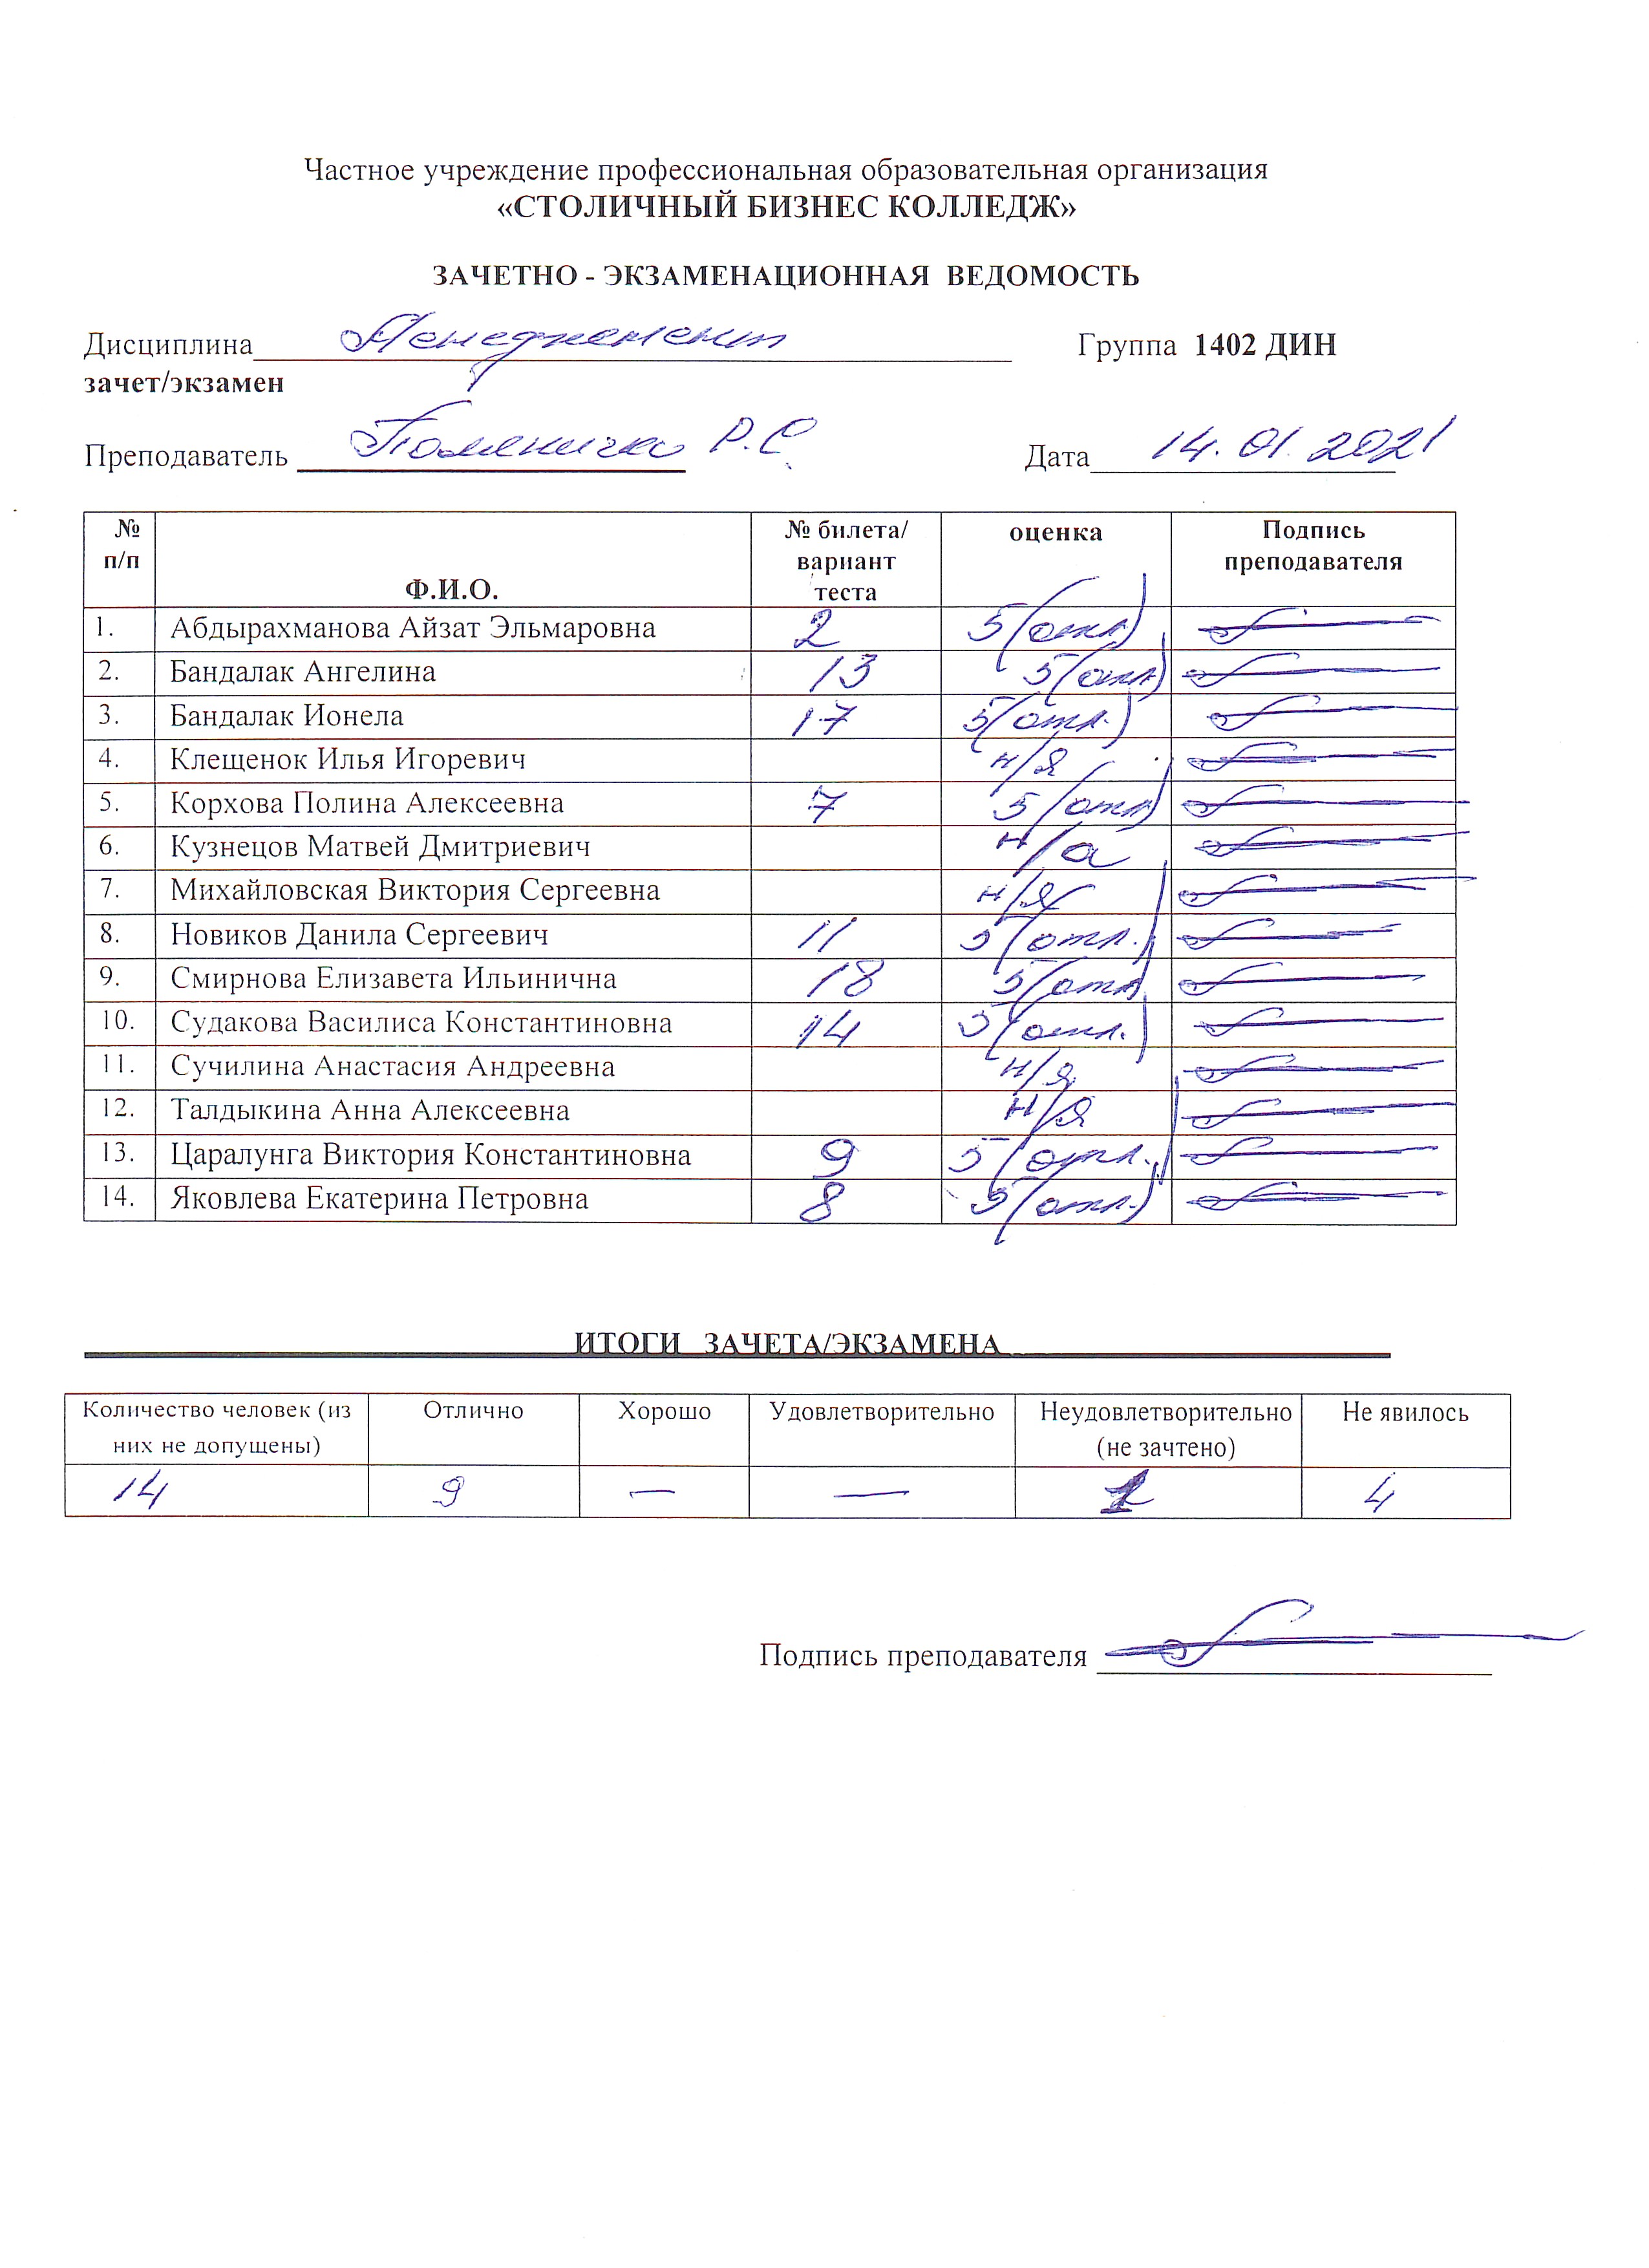 Частное учреждение профессиональная образовательная организация
«СТОЛИЧНЫЙ БИЗНЕС КОЛЛЕДЖ»
ЗАЧЕТНО - ЭКЗАМЕНАЦИОННАЯ ВЕДОМОСТЬ
Дисциплина Менеджемент Группа 1402 ДИН
зачет/экзамен
Преподаватель Р.С. Дата 14.01.2021
№ п/п Ф.И.О. № билета/ вариант теста оценка Подпись преподавателя
1. Абдырахманова Айзат Эльмаровна 2 5(отл)
2. Бандалак Ангелина 13 5(отл)
3. Бандалак Ионела 17 5(отл.)
4. Клещенок Илья Игоревич н/я
5. Корхова Полина Алексеевна 7 5(отл)
6. Кузнецов Матвей Дмитриевич н/а
7. Михайловская Виктория Сергеевна н/я
8. Новиков Данила Сергеевич 11 5(отл.)
9. Смирнова Елизавета Ильинична 18 5(отл)
10. Судакова Василиса Константиновна 14 5(отл.)
11. Сучилина Анастасия Андреевна н/я
12. Талдыкина Анна Алексеевна н/я
13. Царалунга Виктория Константиновна 9 5(отл.)
14. Яковлева Екатерина Петровна 8 5(отл.)
ИТОГИ ЗАЧЕТА/ЭКЗАМЕНА
Количество человек (из них не допущены) Отлично Хорошо Удовлетворительно Неудовлетворительно (не зачтено) Не явилось
14 9 — — 1 4
Подпись преподавателя